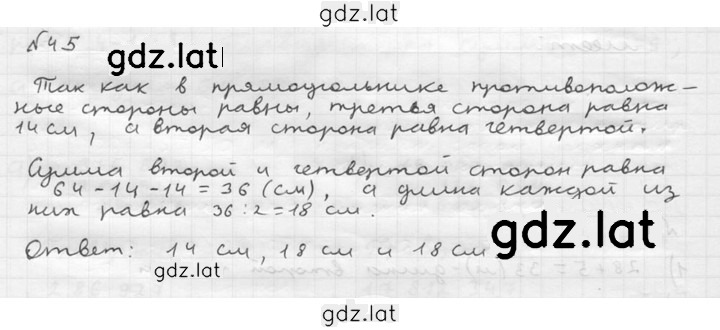 gdz.lat
№45
gdz.lat
Так как в прямоугольнике противополож-
ные стороны равны, третья сторона равна
14 см, а вторая сторона равна четвертой.
Сумма второй и четвертой сторон равна
64-14-14=36 (см), а длина каждой из
них равна 36:2=18 см.
gdz.lat
Ответ: 14 см, 18 см и 18 см
gdz.lat
gdz.lat